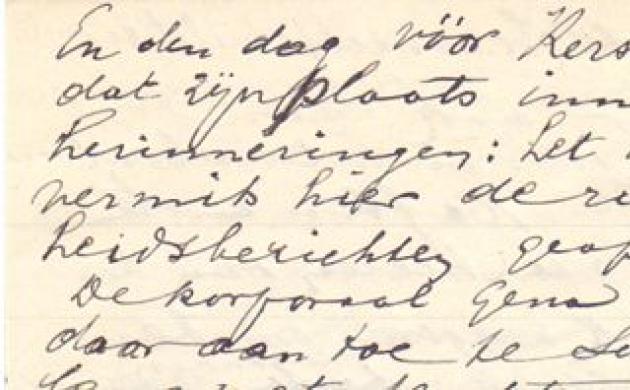 En den dag vóór Kers
dat zijn plaats inn
herinneringen: het
vermits hier de
heidsberichten geop
De korporaal Gena
daar aan toe te